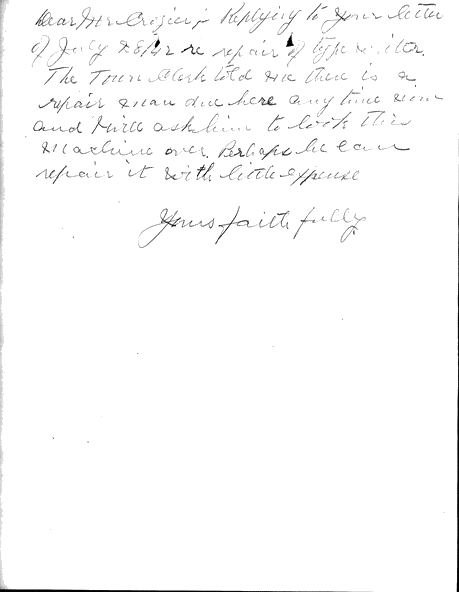 Dear Mr Crozier;- Replying to your letter
of July 28/12 re repair of typewriter.
The Town Clerk told me there is a
repair man due here any time now
and I will ask him to look this
machine over. Perhaps he can
repair it with little expense
Yours faithfully